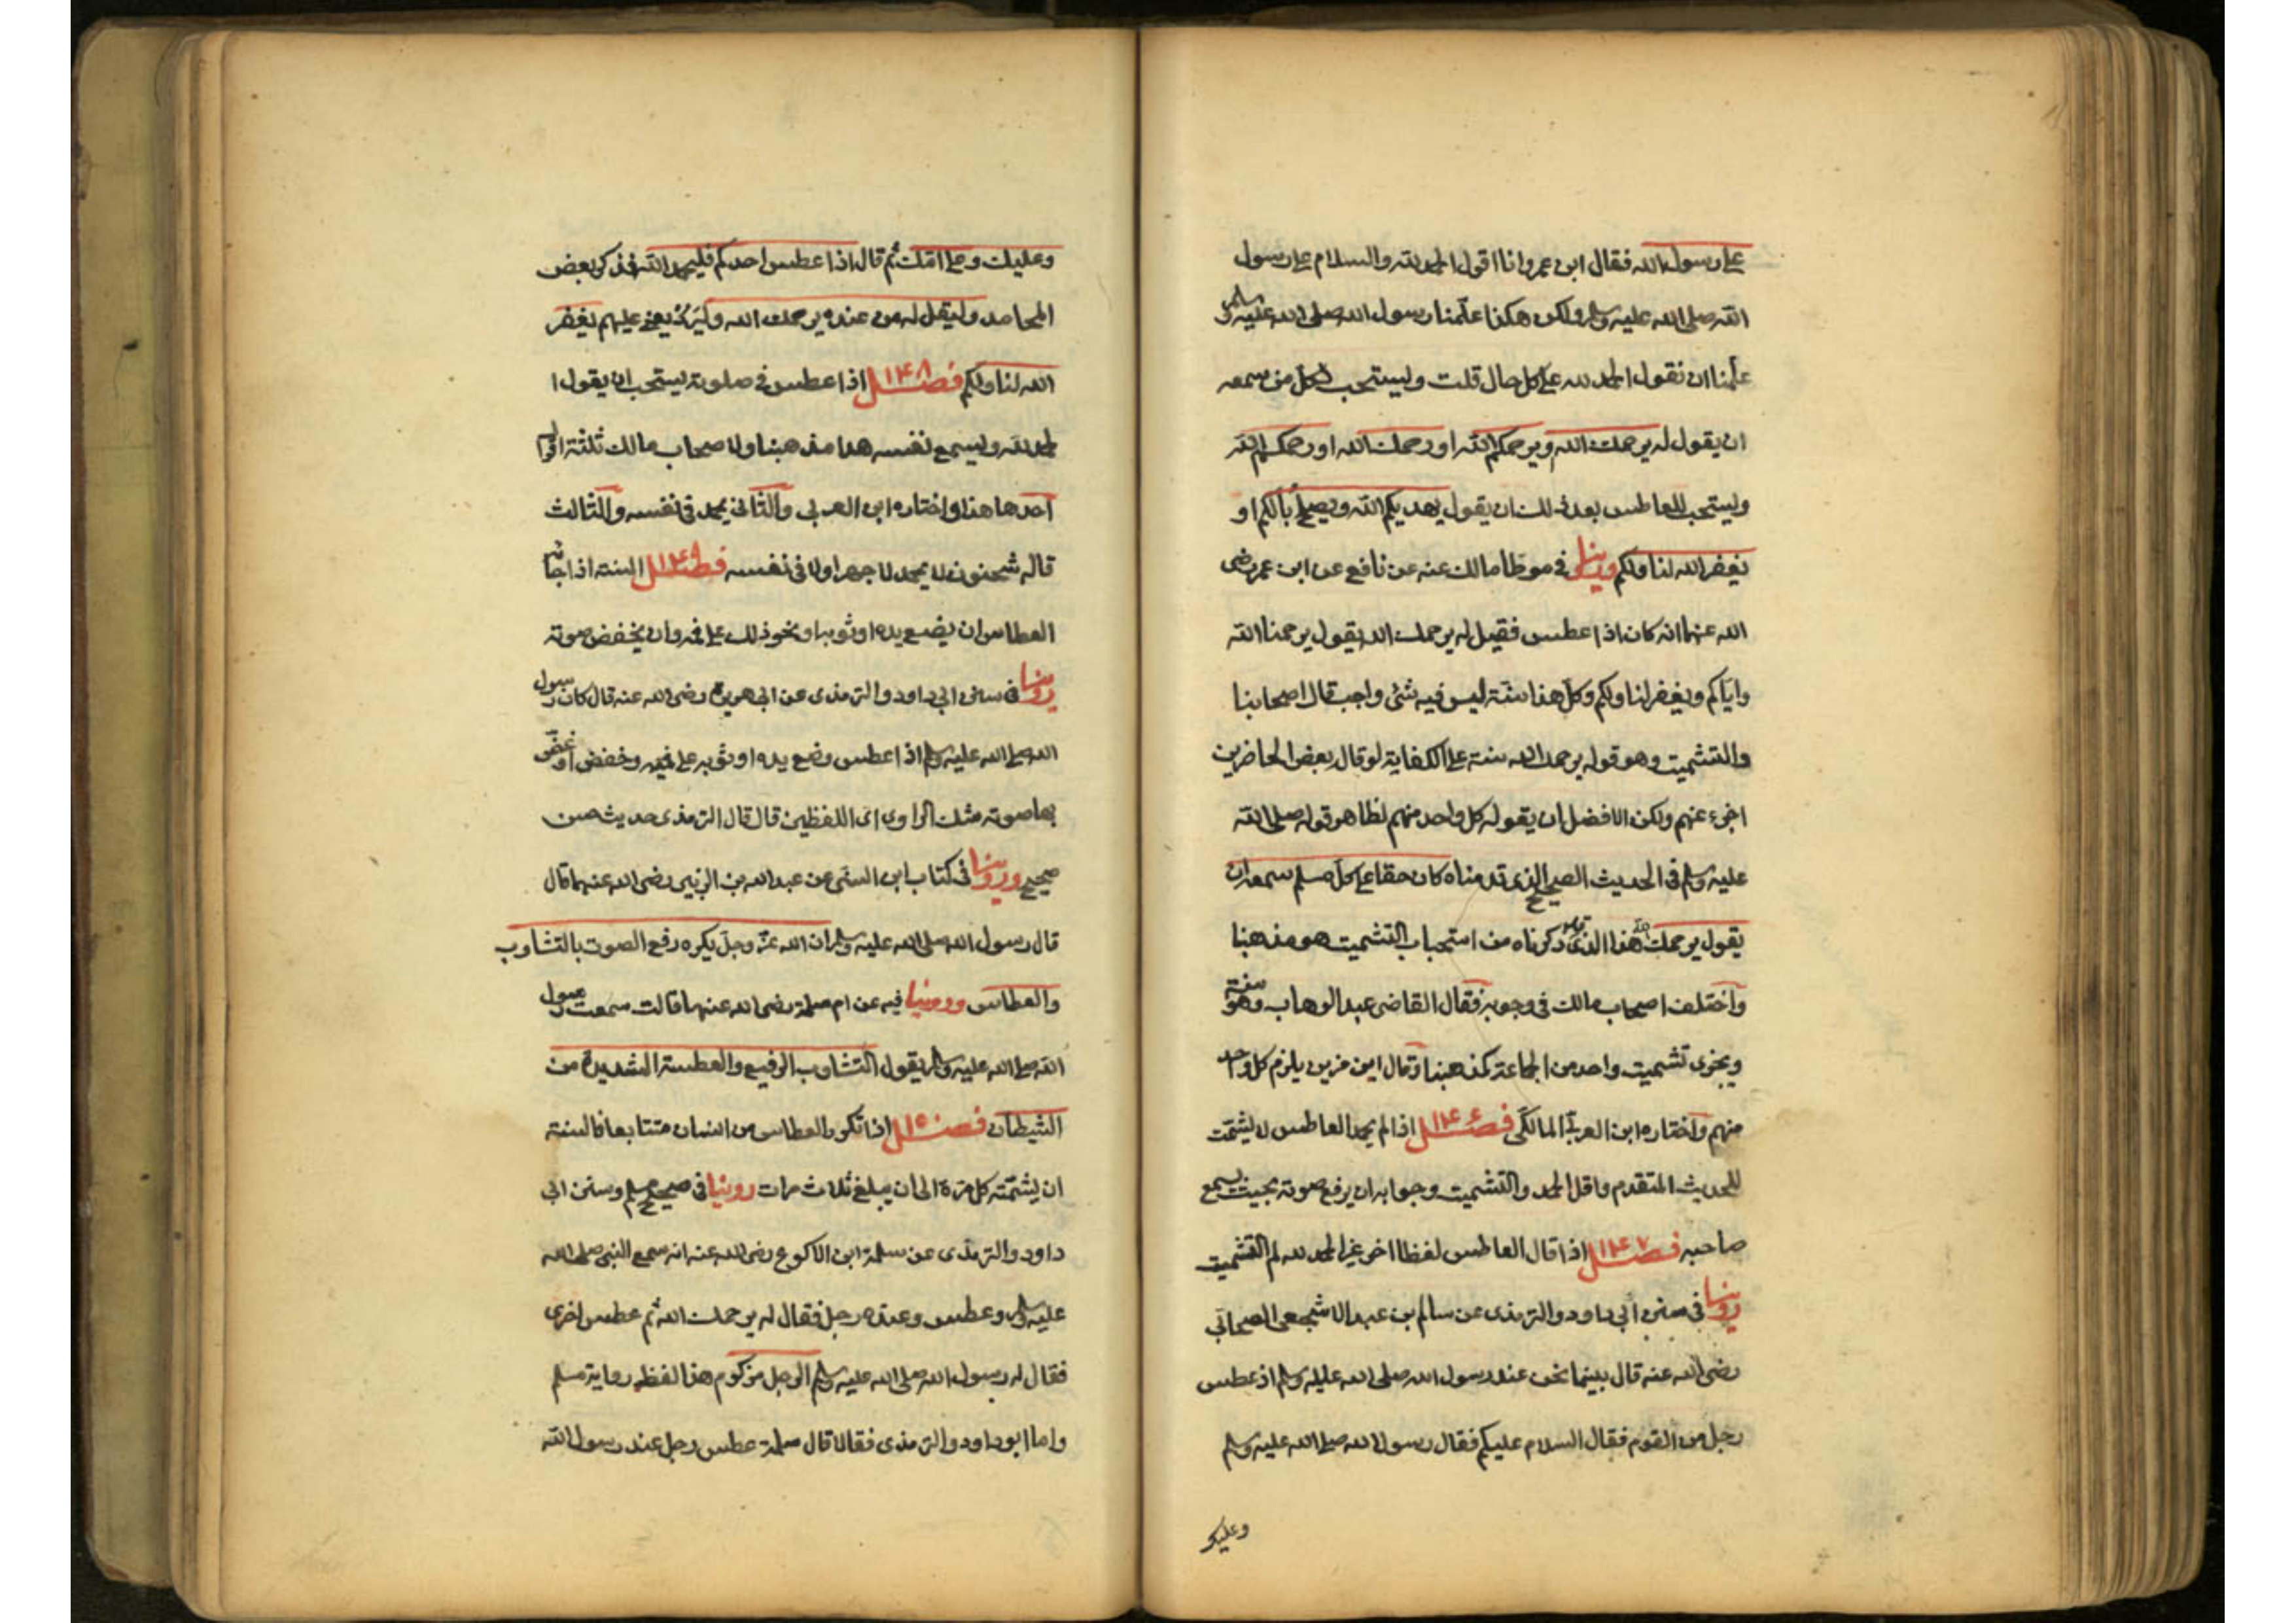 على رسول الله فقال ابن عمر وانا اقول الحمد لله والسلام على رسول
الله صلى الله عليه وسلم ولكن هكذا علّمنا رسول الله صلى الله عليه وسلم
علّمنا ان نقول الحمد لله على كل حال قلت ويستحب لكل من سمعه
ان يقول له يرحمك الله ويرحمكم الله او رحمك الله او رحمكم الله
ويستحب للعاطس بعد ذلك ان يقول يهديكم الله ويصلح بالكم او
يغفر الله لنا ولكم روينا في موطا مالك عنه عن نافع عن ابن عمر رضى
الله عنهما انه كان اذا عطس فقيل له يرحمك الله يقول يرحمنا الله
واياكم ويغفر لنا ولكم وكل هذا سنّة ليس فيه شئ واجب قال اصحابنا
والتشميت وهو قوله يرحمك الله سنة على الكفاية لو قال بعض الحاضرين
اجزء عنهم ولكن الافضل ان يقوله كل واحد منهم لظاهر قوله صلى الله
عليه وسلم في الحديث الصحيح الذى قدمناه كان حقا على كل مسلم سمعه ان
يقول يرحمك الله هذا الذى ذكرناه من استحباب التشميت هو مذهبنا
واختلف اصحاب مالك في وجوبه فقال القاضى عبد الوهاب وهو سنة
ويجزى تشميت واحد من الجماعة كمذهبنا وقال ابن مزين يلزم كل واحد
منهم واختاره ابن العربى المالكى فصل ١٤٦ اذا لم يحمد العاطس لا يشمّت
للحديث المتقدم واقل الحمد والتشميت وجوابه ان يرفع صوته بحيث يسمع
صاحبه فصل ١٤٧ اذا قال العاطس لفظا اخر غير الحمد لله لم التشميت
روينا في سنن أبي داود والترمذى عن سالم بن عبد الاشجعى الصحابى
رضى الله عنه قال بينما نحن عند رسول الله صلى الله عليه وسلم اذ عطس
رجل من القوم فقال السلام عليكم فقال رسول الله صلى الله عليه وسلم
وعليك
وعليك وعلى امّك ثم قال اذا عطس احدكم فليحمد الله فذكر بعض
المحامد وليقل له من عنده يرحمك الله وليردّ يعنى عليهم يغفر
الله لنا ولكم فصل ١٤٨ اذا عطس في صلوته يستحب ان يقول ا
لحمد لله ويسمع نفسه هذا مذهبنا ولاصحاب مالك ثلثة اقوال
احدها هذا واختاره ابن العربي والثانى يحمد فى نفسه والثالث
قاله سحنون لا يحمد لا جهرا ولا في نفسه فصل ١٤٩ السنة اذا جاءه
العطاس ان يضع يده او ثوبه او نحو ذلك على فمه وان يخفض صوته
روينا في سنن ابي داود والترمذى عن ابي هريرة رضى الله عنه قال كان رسول
الله صلى الله عليه وسلم اذا عطس وضع يده او ثوبه على فيه وخفض او غض
بها صوته شك الراوى اىّ اللفظين قال قال الترمذى حديث حسن
صحيح وروينا في كتاب ابن السنى عن عبد الله بن الزبير رضى الله عنهما قال
قال رسول الله صلى الله عليه وسلم ان الله عزّ وجلّ يكره رفع الصوت بالتثاوب
والعطاس وروينا فيه عن ام سلمة رضى الله عنها قالت سمعت رسول
الله صلى الله عليه وسلم يقول التثاوب الرفيع والعطسة الشديدة من
الشيطان فصل ١٥٠ اذا تكرر العطاس من انسان متتابعا فالسنة
ان يشمّته كل مرّة الى ان يبلغ ثلاث مرات روينا في صحيح مسلم وسنن ابي
داود والترمذى عن سلمة ابن الاكوع رضى الله عنه انه سمع النبي صلى الله
عليه وسلم وعطس وعنده رجل فقال له يرحمك الله ثم عطس اخرى
فقال له رسول الله صلى الله عليه وسلم الرجل مزكوم هذا لفظ رواية مسلم
واما ابو داود والترمذى فقالا قال سلمة عطس رجل عند رسول الله